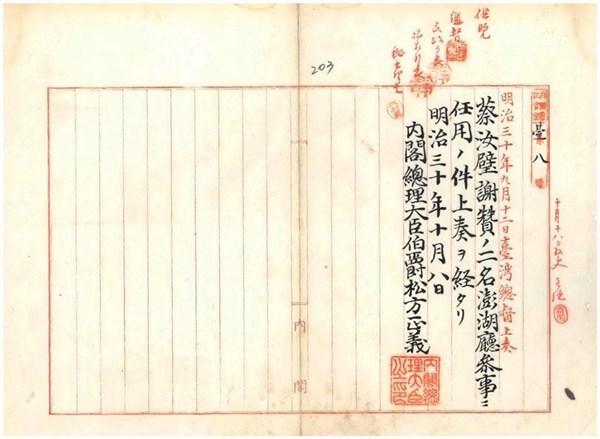 臺八
明治三十年九月十二日臺灣總督上奏
蔡汝璧謝贊ノ二名澎湖廳參事ニ
任用ノ件上奏ヲ経タリ
明治三十年十月八日
内閣總理大臣伯爵松方正義
内閣總理大臣之印
供覧
總督
203
内閣